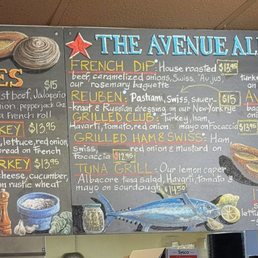 THE AVENUE AL
FRENCH DIP* House roasted $13.95
beef, caramelized onions, Swiss, "Au jus"
our rosemary baguette
REUBEN* Pastrami, Swiss, sauer- $15
kraut & Russian dressing on our New York rye
GRILLED CLUB* Turkey, ham,
Havarti, tomato, red onion mayo on focaccia $13.95
GRILLED HAM & SWISS* Ham,
Swiss, red onion & mustard on
Focaccia $12.95
TUNA GRILL - Our lemon caper
Albacore tuna salad, Havarti, Tomato &
mayo on sourdough $14.50
ES
$15
st beef, Jalapeño
onion, pepperjack
French roll
KEY $13.95
lettuce, red onion,
spread on French
RKEY $13.95
cheese, cucumber,
on rustic wheat